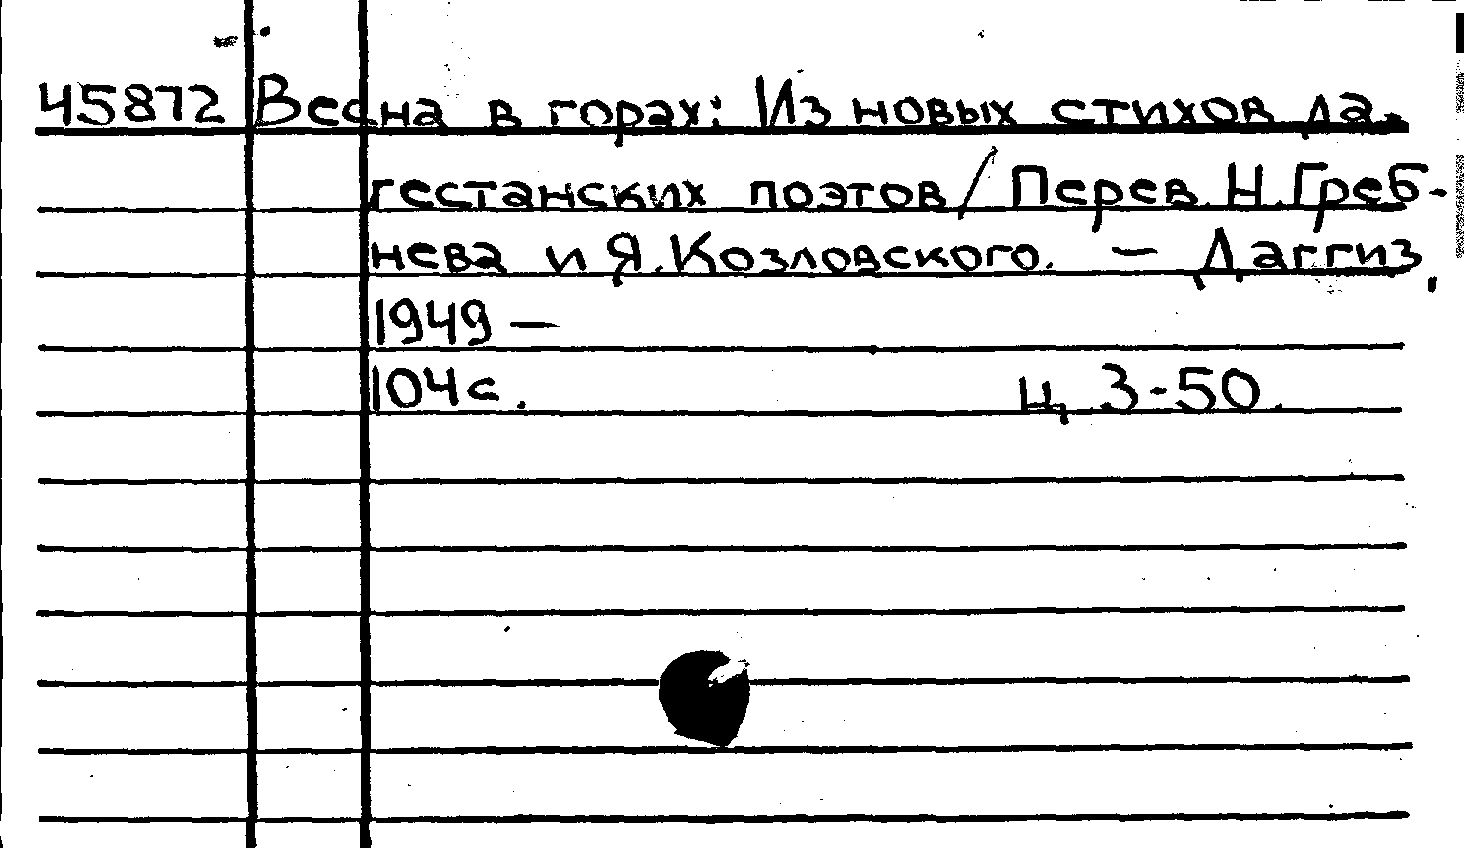 45872 Весна в горах: Из новых стихов да-
гестанских поэтов / Перев. Н.Греб-
нева и Я.Козловского. – Даггиз,
1949 –
104с. ц. 3-50.